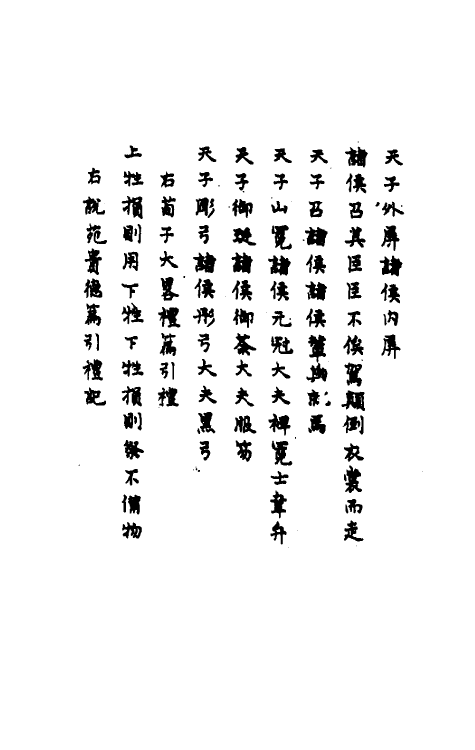 天子外屏諸侯內屏
諸侯召其臣臣不俟駕顛倒衣裳而走
天子召諸侯諸侯輦輿就馬
天子山冕諸侯元冠大夫裨冕士韋弁
天子御珽諸侯御荼大夫服笏
天子彫弓諸侯彤弓大夫黑弓
右荀子大畧禮篇引禮
上牲損則用下牲下牲損則祭不備物
右說苑貴德篇引禮記